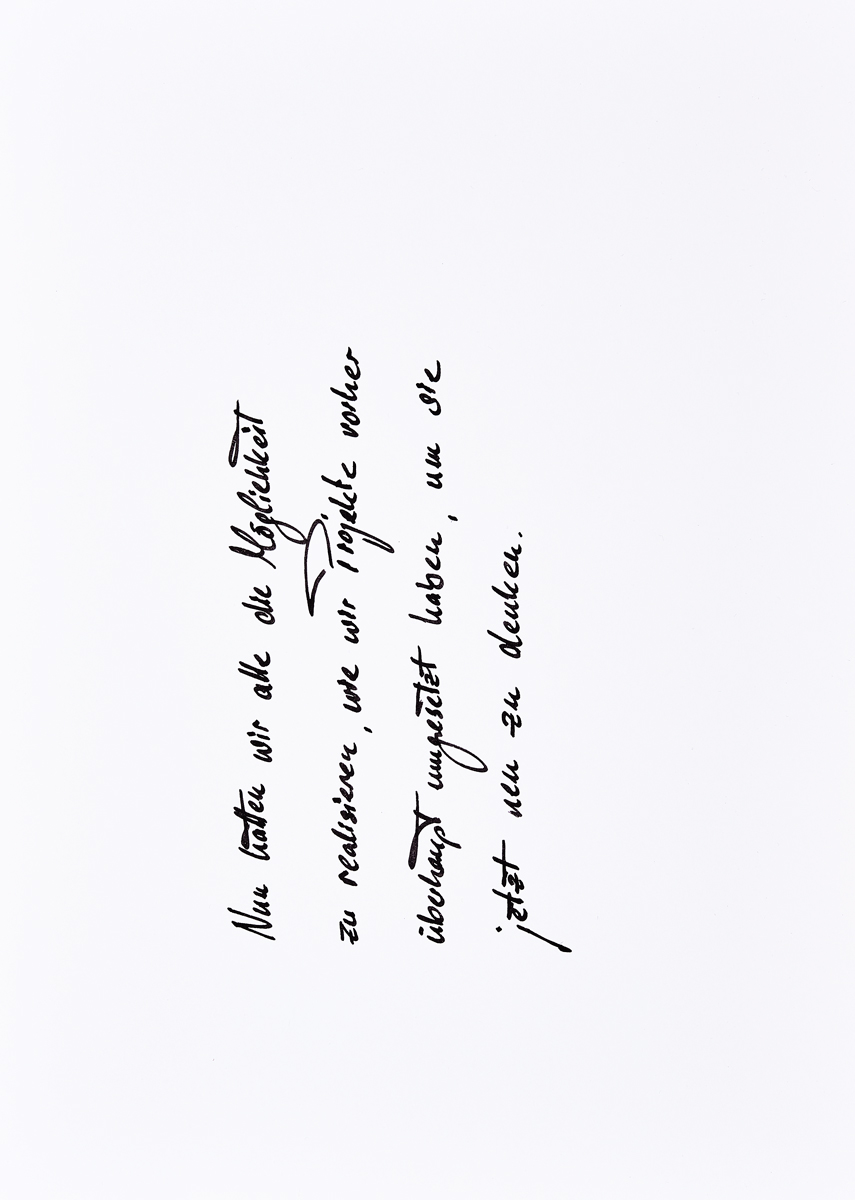 Nun hatten wir alle die Möglichkeit
zu realisieren, wie wir Projekte vorher
überhaupt umgesetzt haben, um sie
jetzt neu zu denken.